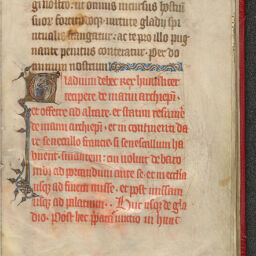 gi nostro: ut omnis incursus hostiu
suor fortitudoqz uirtute gladij spi
ritualis frangatur. ac te pro illo pug
nante penitus conteratur. Per do
minum nostrum
Gladium debet Rex humiliter
recipere de manu archiepi.
et offerre ad altare. et statim resume
de manu archiepi. et in continenti da
re senescallo francie. si senescallum ha
buerit. sin autem: cui uoluit de baro
nibz ad portandum ante se. et in ecclesia
usqz ad finem misse. et post missam
usqz ad palacium. Huc usqz de gla
dio. Post hec preparatur unctio in hunc